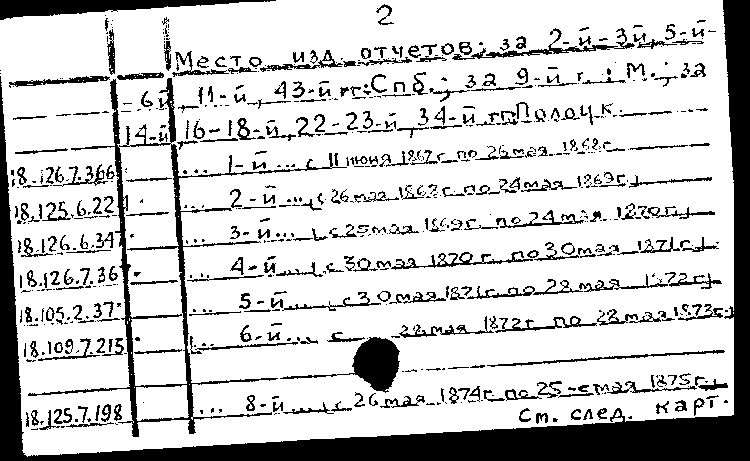 2
Место изд. отчетов: за 2-й-3й, 5-й-
-6й, 11-й, 43-й гг: Спб.; за 9-й г.: М.; за
14-й, 16-18-й, 22-23-й, 34-й гг: Полоцк.
18.126.7.366 ... 1-й ... с 11 июня 1867г. по 26 мая 1868г.
18.125.6.221 ... 2-й ... [с 26 мая 1868г. по 24 мая 1869г.]
18.126.6.347 ... 3-й ... [с 25 мая 1869г. по 24 мая 1870г.]
18.126.7.367 ... 4-й ... [с 30 мая 1870г. по 30 мая 1871г.]
18.105.2.37 ... 5-й ... [с 30 мая 1871г. по 28 мая 1872г.]
18.109.7.215 ... 6-й ... с 28 мая 1872г. по 28 мая 1873г.]
18.125.7.198 ... 8-й ... [с 26 мая 1874г. по 25-е мая 1875г.]
См. след. карт.